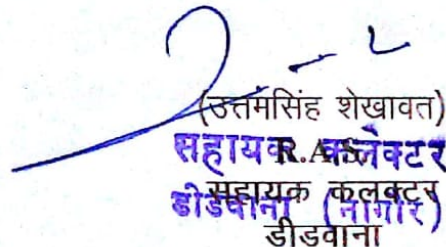 (उत्तमसिंह शेखावत)
R.A.S
सहायक कलेक्टर
सहायक कलक्टर
डीडवाना (नागौर)
डीडवाना